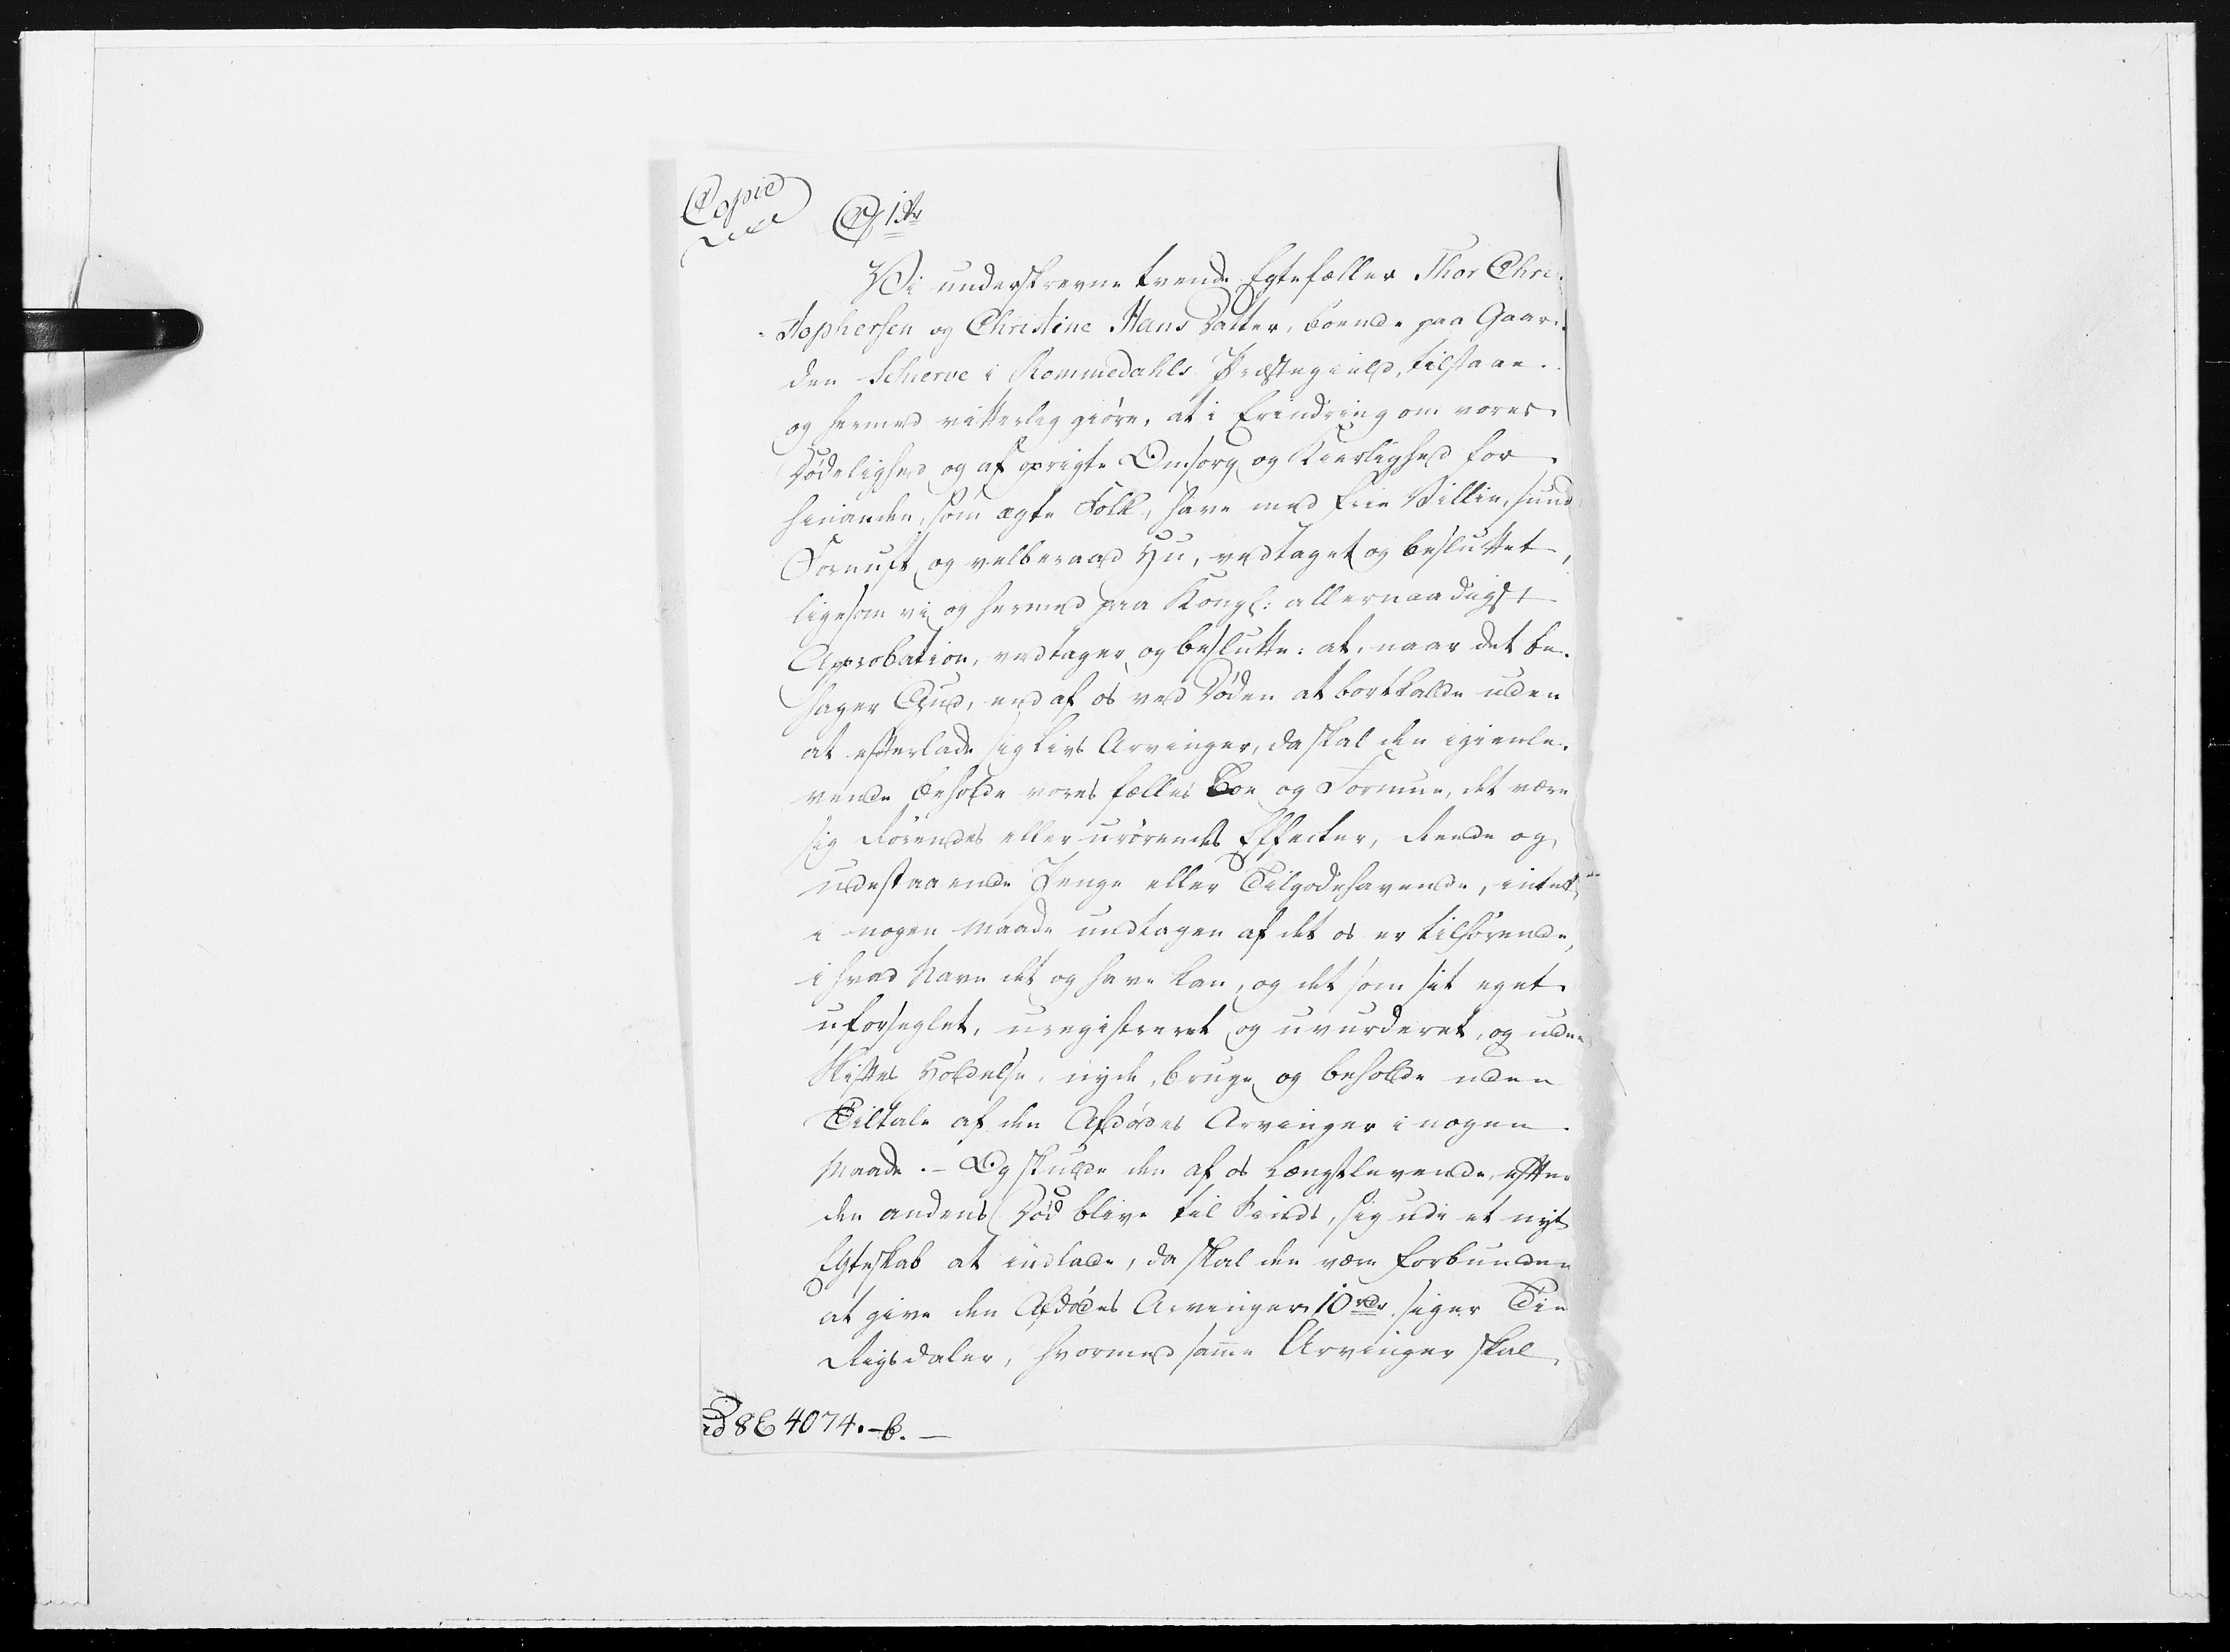 Copie
Vi underskrevne tvende Egtefæller Thor Chri¬
stophersen og Christine Hans Datter, boende paa Gaar¬
den Schierve i Rommedahls Præstegield, tilstaae
og hermed vitterlig giøre, at i Erindring om vores
Dødelighed og af oprigte Omsorg og Kierlighed for
hinanden, som ægte Folk, have med frie Villie, sund
Fornuft og velberaad Hu, vedtaget og besluttet,
ligesom vi og hermed paa Kongl: allernaadigst
Approbation, vedtager og beslutte: at, naar det be¬
hager Gud, en af os ved Døden at bortkalde uden
at efterlade sig Livs Arvinger, da skal den igienle¬
vende beholde vores fælles Boe og Formue, det være
sig Rørendes eller urørendes Effecter, Rede og
udestaaende Penge eller Tilgodehavende, intet
i nogen Maade undtagen af det os er tilhørende,
i hvad Navn det og have kan, og det som sit eget
uforseglet, uregistreret og uvurderet, og uden
Skiftes Holdelse, nyde, bruge og beholde uden
Tiltale af den Afdødes Arvinger i nogen
Maade. – Og skulde den af os Længstlevende, efter
den andens Død blive til Sinds, sig udi et nyt
Egteskab at indlade, da skal den være forbunden
at give den Afdødes Arvinger 10 rdr. siger Tie
Rigsdaler, hvormed samme Arvinger skal
4074.-b.–